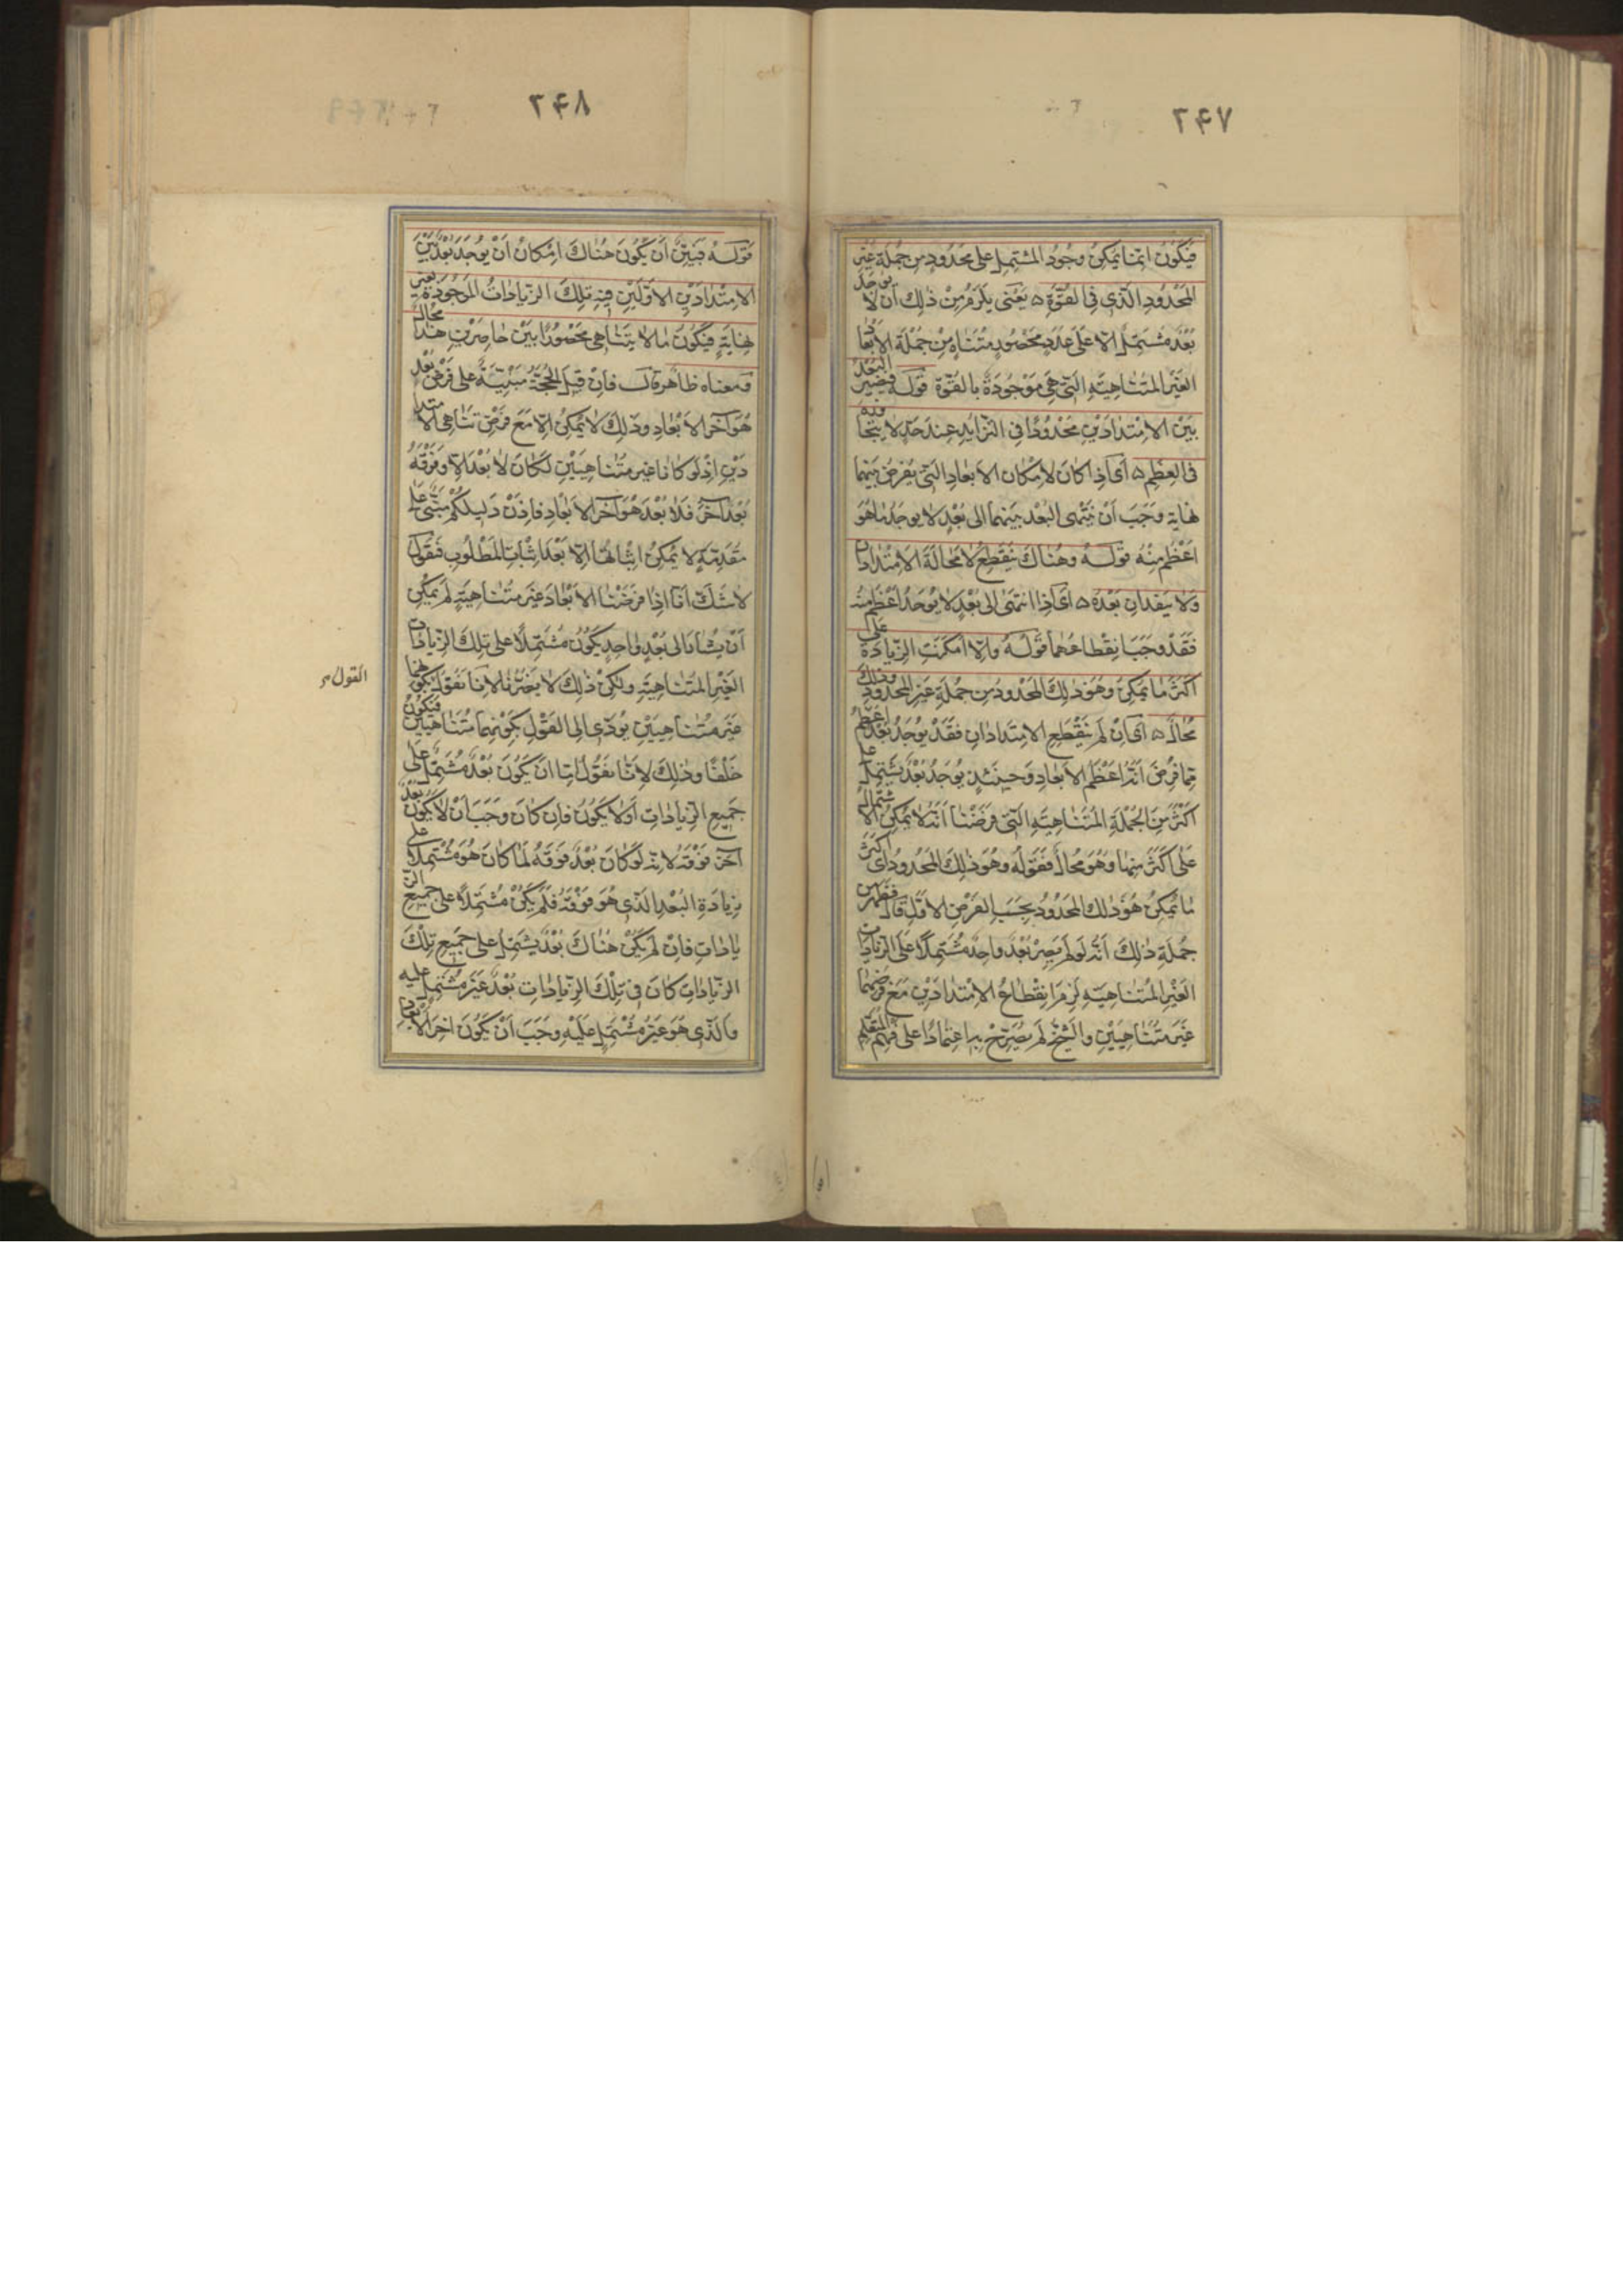 ٢٤٧
فيكون انما يمكن وجود المشتمل على محدود من جملة غير
المحدود الذي في القوة ه يعني يلزم من ذلك ان لا يوجد
بعد مشتمل الا على عدد محصور متناه من جملة الابعاد
الغير المتناهية التي هي موجودة بالقوة قوله فيصير البعد
بين الامتدادين محدودا في التزايد عند حد لا يتجاوزه
في العظم ه أي اذا كان لامكان الابعاد التي يفرض بينهما
نهاية وجب ان ينتهى البعد بينهما الى بعد لا يوجد ما هو
اعظم منه قوله وهناك ينقطع لا محالة الامتدادان
ولا ينفدان بعده ه أي اذا انتهى الى بعد لا يوجد اعظم منه
فقد وجب انقطاعهما قوله والا امكنت الزيادة على
اكثر ما يمكن وهو ذلك المحدود من جملة غير المحدود وذلك
محال ه أي ان لم ينقطع الامتدادان فقد يوجد بعد اعظم
مما فرض انه اعظم الابعاد وحينئذ يوجد بعد يشتمل على
اكثر من الجملة المتناهية التي فرضنا انه لا يمكن الاشتمال
على اكثر منها وهو محال فقوله وهو ذلك المحدود أي اكثر
ما يمكن هو ذلك المحدود بحسب الفرض الاول قال فظهر من
جملة ذلك انه لو لم يصر بعد واحد مشتملا على الزيادات
الغير المتناهية لزم انقطاع الامتدادين مع فرضهما
غير متناهيين والشيخ لم يصرح به اعتمادا على فهم المتعلم
٢٤٨
قوله فبين ان يكون هناك امكان ان يوجد بعد بين
الامتدادين الاولين فيه تلك الزيادات الموجودة بغير
نهاية فيكون ما لا يتناهى محصورا بين حاصرين هذا محال
ومعناه ظاهر قال فان قيل الحجة مبنية على فرض بعد
هو آخر الابعاد وذلك لا يمكن الا مع فرض تناهى الامتدا
دين اذ لو كانا غير متناهيين لكان لا بعد الا وفوقه
بعد آخر فلا بعد هو آخر الابعاد فاذن دليلكم مبني على
مقدمة لا يمكن اثباتها الا بعد اثبات المطلوب فنقول
لا شك انا اذا فرضنا الابعاد غير متناهية لم يمكن
ان يشار الى بعد واحد يكون مشتملا على تلك الزيادات
الغير المتناهية ولكن ذلك لا يضرنا لانا نقول بكونهما
القول
غير متناهيين يؤدي الى القول بكونهما متناهيين فيكون
خلفا وذلك لانا نقول اما ان يكون بعد مشتمل على
جميع الزيادات أو لا يكون فان كان وجب ان لا يكون بعد
آخر فوقه لانه لو كان بعد فوقه لما كان هو مشتملا على
زيادة البعد الذي هو فوقه فلم يكن مشتملا على جميع الز
يادات فان لم يكن هناك بعد يشتمل على جميع تلك
الزيادات كان في تلك الزيادات بعد غير مشتمل عليه
والذي هو غير مشتمل عليه وجب ان يكون آخر الابعاد